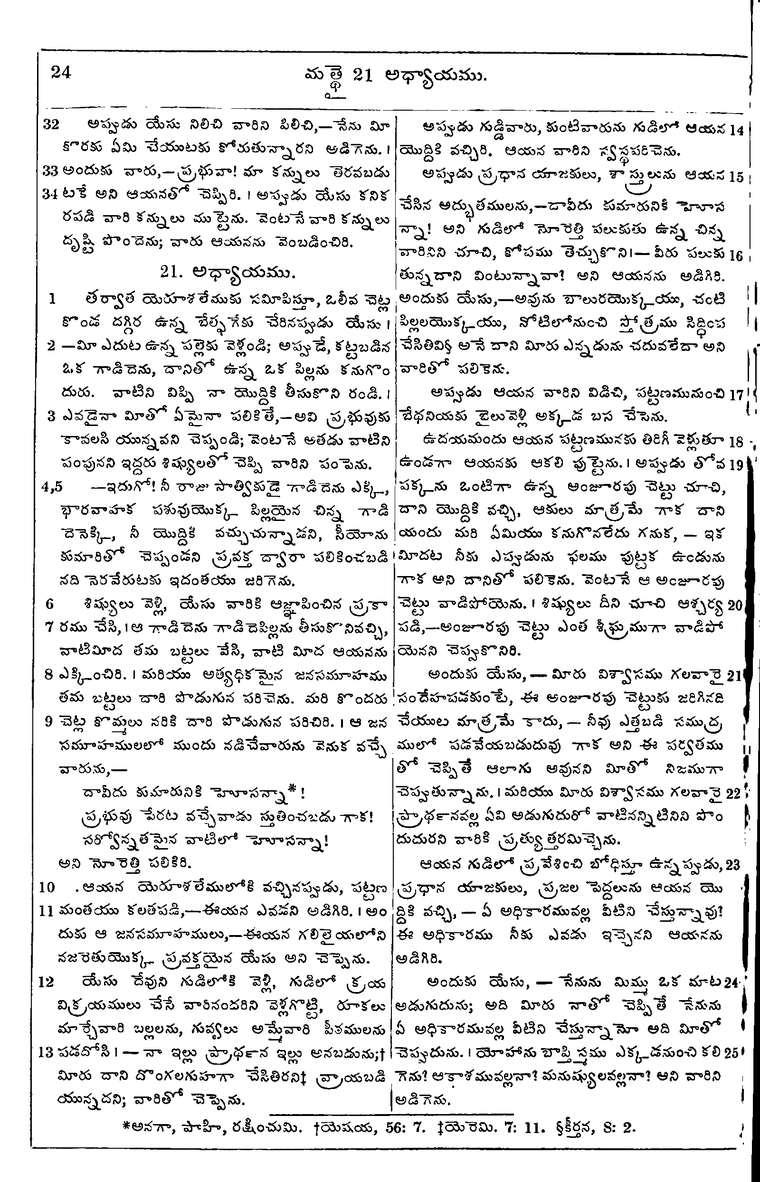 24
మత్తై 21 అధ్యాయము.
32 అప్పుడు యేసు నిలిచి వారిని పిలిచి,—నేను మీ
కొరకు ఏమి చేయుటకు కోరుతున్నారని అడిగెను. ।
33 అందుకు వారు,—ప్రభువా! మా కన్నులు తెరవబడు
34 టకే అని ఆయనతో చెప్పిరి. । అప్పుడు యేసు కనిక
రపడి వారి కన్నులు ముట్టెను. వెంటనే వారి కన్నులు
దృష్టి పొందెను; వారు ఆయనను వెంబడించిరి.
21. అధ్యాయము.
1 తర్వాత యెరూశలేముకు సమీపిస్తూ, ఒలీవ చెట్ల
కొండ దగ్గిర ఉన్న బేత్ఫగేకు చేరినప్పుడు యేసు ।
2 —మీ ఎదుట ఉన్న పల్లెకు వెళ్లండి; అప్పుడే, కట్టబడిన
ఒక గాడిదెను, దానితో ఉన్న ఒక పిల్లను కనుగొం
దురు. వాటిని విప్పి నా యొద్దికి తీసుకొని రండి. ।
3 ఎవడైనా మీతో ఏమైనా పలికితే,—అవి ప్రభువుకు
కావలసి యున్నవని చెప్పండి; వెంటనే అతడు వాటిని
పంపునని ఇద్దరు శిష్యులతో చెప్పి వారిని పంపెను.
4,5 —ఇదుగో! నీ రాజు సాత్వికుడై గాడిదెను ఎక్కి,
భారవాహక పశువుయొక్క పిల్లయైన చిన్న గాడి
దెనెక్కి, నీ యొద్దికి వచ్చుచున్నాడని, సీయోను
కుమారితో చెప్పండని ప్రవక్త ద్వారా పలికించబడి
నది నెరవేరుటకు ఇదంతయు జరిగెను.
6 శిష్యులు వెళ్లి, యేసు వారికి ఆజ్ఞాపించిన ప్రకా
7 రము చేసి, । ఆ గాడిదెను గాడిదెపిల్లను తీసుకొనివచ్చి,
వాటిమీద తమ బట్టలు వేసి, వాటి మీద ఆయనను
8 ఎక్కించిరి. । మరియు అత్యధికమైన జనసమూహము
తమ బట్టలు దారి పొడుగున పరిచెను. మరి కొందరు
9 చెట్ల కొమ్మలు నరికి దారి పొడుగున పరిచిరి. । ఆ జన
సమూహములలో ముందు నడిచేవారును వెనుక వచ్చే
వారును,—
దావీదు కుమారునికి హోసన్నా*!
ప్రభువు పేరట వచ్చేవాడు స్తుతించబడు గాక!
సర్వోన్నతమైన వాటిలో హోసన్నా!
అని మోరెత్తి పలికిరి.
10 ఆయన యెరూశలేములోకి వచ్చినప్పుడు, పట్టణ
11 మంతయు కలతపడి,—ఈయన ఎవడని అడిగిరి. । అం
దుకు ఆ జనసమూహములు,—ఈయన గలిలైయలోని
నజరెతుయొక్క ప్రవక్తయైన యేసు అని చెప్పెను.
12 యేసు దేవుని గుడిలోకి వెళ్లి, గుడిలో క్రయ
విక్రయములు చేసే వారినందరిని వెళ్లగొట్టి, రూకలు
మార్చేవారి బల్లలను, గువ్వలు అమ్మేవారి పీఠములను
13 పడదోసి । — నా ఇల్లు ప్రార్థన ఇల్లు అనబడును;†
మీరు దాని దొంగలగుహగా చేసితిరని‡ వ్రాయబడి
యున్నదని; వారితో చెప్పెను.
అప్పుడు గుడ్డివారు, కుంటివారును గుడిలో ఆయన 14
యొద్దికి వచ్చిరి. ఆయన వారిని స్వస్థపరిచెను.
అప్పుడు ప్రధాన యాజకులు, శాస్త్రులును ఆయన 15
చేసిన అద్భుతములను,—దావీదు కుమారునికి హోస
న్నా! అని గుడిలో మోరెత్తి పలుకుతు ఉన్న చిన్న
వారినిని చూచి, కోపము తెచ్చుకొని । — వీరు పలుకు 16
తున్నదాని వింటున్నావా? అని ఆయనను అడిగిరి.
అందుకు యేసు,—అవును బాలురయొక్కయు, చంటి
పిల్లలయొక్కయు, నోటిలోనుంచి స్తోత్రము సిద్ధింప
చేసితివి§ అనే దాని మీరు ఎన్నడును చదువలేదా అని
వారితో పలికెను.
అప్పుడు ఆయన వారిని విడిచి, పట్టణమునుంచి 17
బేథనియకు బైలువెళ్లి అక్కడ బస చేసెను.
ఉదయమందు ఆయన పట్టణమునకు తిరిగి వెళ్లుతూ 18
ఉండగా ఆయనకు ఆకలి పుట్టెను. । అప్పుడు తోవ 19
పక్కను ఒంటిగా ఉన్న అంజూరపు చెట్టు చూచి,
దాని యొద్దికి వచ్చి, ఆకులు మాత్రమే గాక దాని
యందు మరి ఏమియు కనుగొనలేదు గనుక, — ఇక
మీదట నీకు ఎప్పుడును ఫలము పుట్టక ఉండును
గాక అని దానితో పలికెను. వెంటనే ఆ అంజూరపు
చెట్టు వాడిపోయెను. । శిష్యులు దీని చూచి ఆశ్చర్య 20
పడి,—అంజూరపు చెట్టు ఎంత శీఘ్రముగా వాడిపో
యెనని చెప్పుకొనిరి.
అందుకు యేసు, — మీరు విశ్వాసము గలవారై 21
సందేహపడకుంటే, ఈ అంజూరపు చెట్టుకు జరిగినది
చేయుట మాత్రమే కాదు, — నీవు ఎత్తబడి సముద్ర
ములో పడవేయబడుదువు గాక అని ఈ పర్వతము
తో చెప్పితే ఆలాగు అవునని మీతో నిజముగా
చెప్పుతున్నాను. । మరియు మీరు విశ్వాసము గలవారై 22
ప్రార్థనవల్ల ఏవి అడుగుదురో వాటినన్నిటినిని పొం
దుదురని వారికి ప్రత్యుత్తరమిచ్చెను.
ఆయన గుడిలో ప్రవేశించి బోధిస్తూ ఉన్నప్పుడు, 23
ప్రధాన యాజకులు, ప్రజల పెద్దలును ఆయన యొ
ద్దికి వచ్చి, — ఏ అధికారమువల్ల వీటిని చేస్తున్నావు?
ఈ అధికారము నీకు ఎవడు ఇచ్చెనని ఆయనను
అడిగిరి.
అందుకు యేసు, — నేనును మిమ్ము ఒక మాట 24
అడుగుదును; అది మీరు నాతో చెప్పితే నేనును
ఏ అధికారమువల్ల వీటిని చేస్తున్నానో అది మీతో
చెప్పుదును. । యోహాను బాప్తిస్మము ఎక్కడనుంచి కలి 25
గెను? ఆకాశమువల్లనా? మనుష్యులవల్లనా? అని వారిని
అడిగెను.
*అనగా, పాహి, రక్షించుమి. †యెషయ, 56: 7. ‡యెరెమి. 7: 11. §కీర్తన, 8: 2.